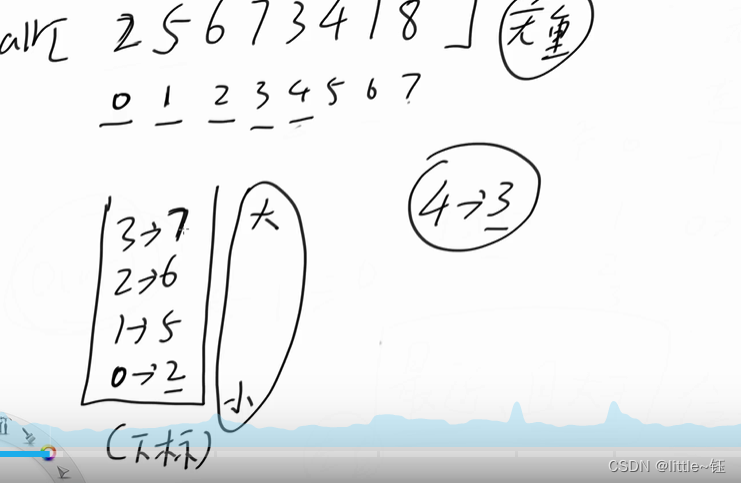 arr[ 2 5 6 7 3 4 1 8 ] 无重
0 1 2 3 4 5 6 7
4→3
3→7 大
2→6
1→5
0→2 小
(下标)
CSDN @little~钰